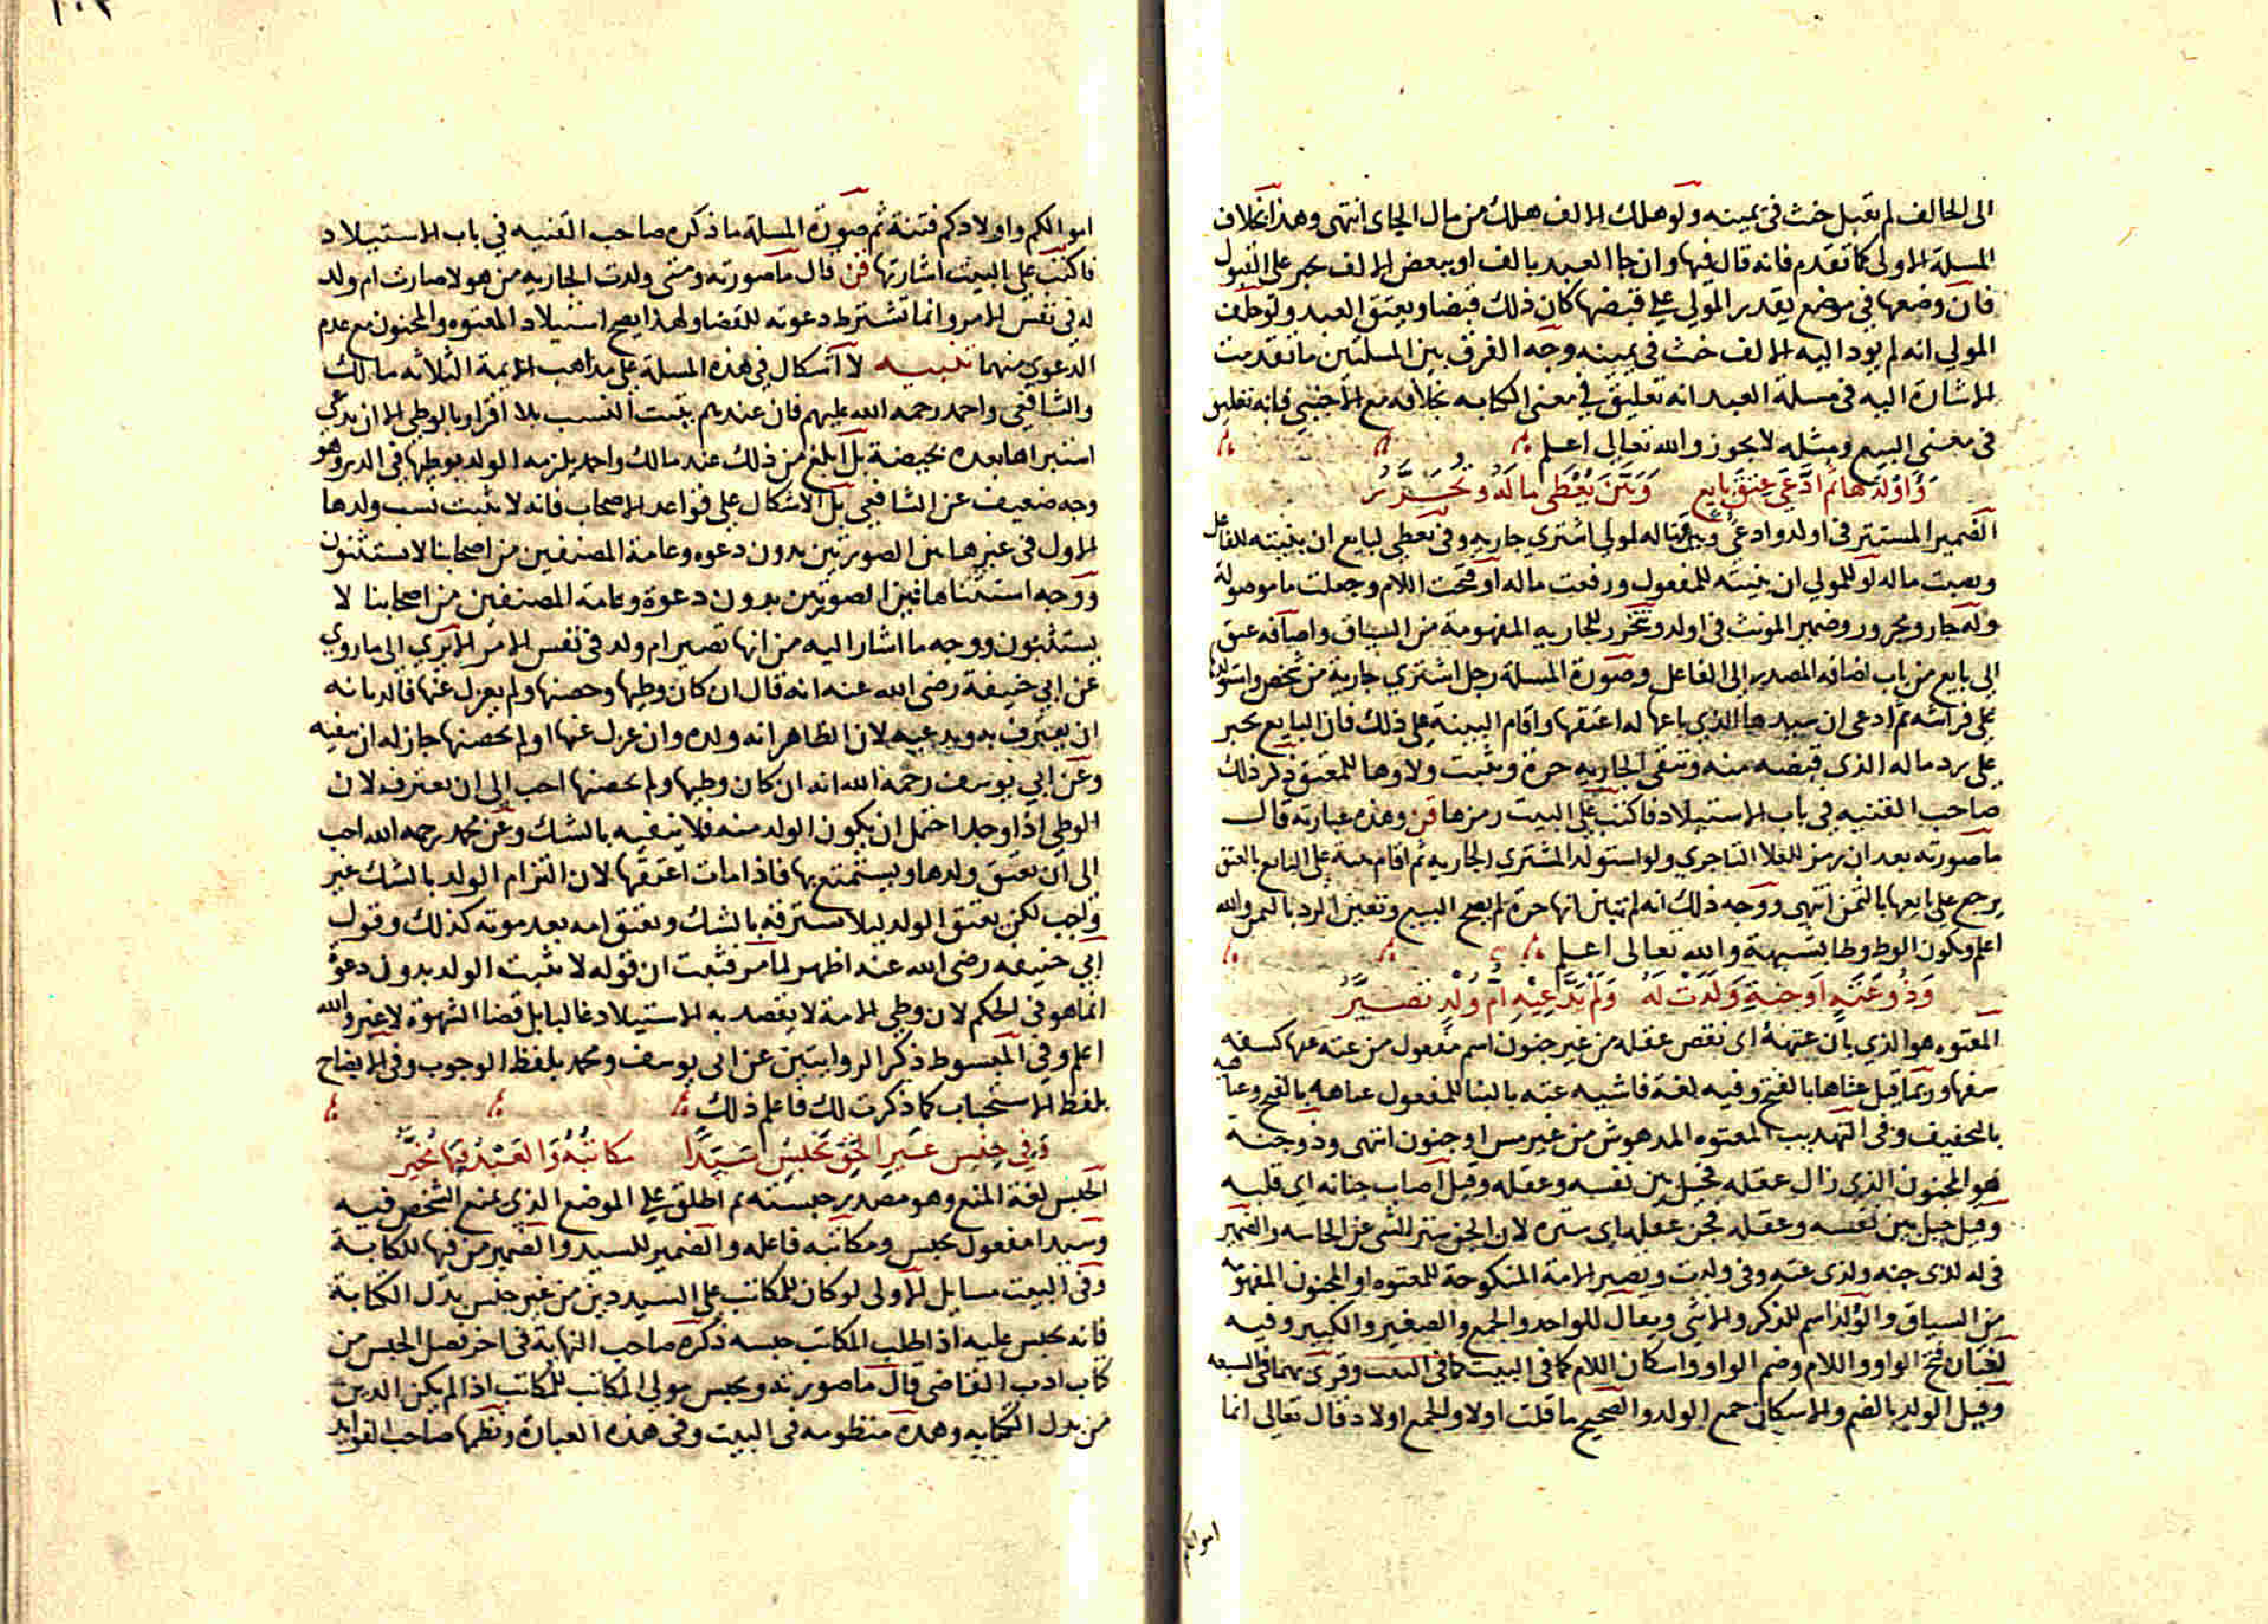 الى الحالف لم يقبل حنث فى يمينه ولو هلك الالف هلك من مال الجاى انتهى وهذا بخلاف
المسلة الاولى كما تقدم فانه قال فيها وان جا العبد بالف او ببعض الالف يجبر على القبول
فان وضعها فى موضع يقدر المولي على قبضها كان ذلك قبضا ويعتق العبد ولو حلف
المولي انه لم يود اليه الالف حنث فى يمينه وجه الفرق بين المسلتين ما تقدمت
الاشارة اليه فى مسلة العبد انه تعليق في معنى الكتابه بخلافه مع الاجنبي فانه تعليق
فى معنى البيع ومثله لا يجوز والله تعالى اعلم
وَاوْلَدَهَا ثُم ادَّعَي عِتقَ بايعٍ وَبَيَّنَ يُعْطَى ما لَهُ وتُحَرَّرُ
الضمير المستتر فى اولد وادعي وبين له لمولي اشتري جاريه وفى يعطي لبايع ان بنيته للفاعل
ونصبت ماله او للمولي ان بنيته للمفعول ورفعت ماله او فتحت اللام وجعلت ما موصولة
وله جار ومجرور وضمير المونث فى اولد وتحرر للجاريه المفهومة من السياق واضافه عتق
الى بايع من باب اضافه المصدر الى الفاعل وصورة المسلة رجل اشتري جارية من شخص واستولدها
على فراشه ثم ادعى ان سيدها الذي باعها له اعتقها واقام البينة على ذلك فان البايع يجبر
على رد ماله الذى قبضه منه وتبقى الجاريه حرة ويثبت ولاوها للمعتق ذكر ذلك
صاحب القنيه فى باب الاستيلاد فاكتب على البيت رمزها قن وهذه عبارته قال
ما صورته بعد ان رمز للعلا التاجري ولو استولد المشتري الجاريه ثم اقام بينة على البايع بالعتق
يرجع على بايعها بالثمن انتهى ووجه ذلك انه لم تبين انها حرة لم يصح البيع وتعين الرد بالثمن والله
اعلم ويكون الوط وطا بشبهة والله تعالى اعلم
وَذُو عَتَهٍ اَوْ جنةٍ وَلَدَتْ لَهُ وَلَمْ يَدَّعِيْهِ اُمُّ وُلْدٍ تَصَيَّرُ
المعتوه هو الذي بان عتهه اى نقص عقله من غير جنون اسم مفعول من عته عتها كسفه
سفها وربما قيل عتاها بالفتح وفيه لغة فاشيه عته بالبنا للمفعول عتاهه بالفتح وعتاهيه
بالتخفيف وفى التهذيب المعتوه المدهوش من غير مس او جنون انتهى وذو جنة
هو المجنون الذي زال عقله فحيل بين نفسه وعقله وقيل اصاب جنانه اي قلبه
وقيل حيل بين نفسه وعقله فجن عقله اى ستره لان الجن ستر الشى عن الحاسه والضمير
فى له لذى جنه ولذى عته وفى ولدت وتصير للامة المنكوحة للمعتوه او المجنون المفهومه
من السياق والولد اسم للذكر والانثى ويقال للواحد والجمع والصغير والكبير وفيه
لغتان فتح الواو واللام وضم الواو واسكان اللام كما فى البيت كما فى البيت وقرى بهما فى السبعه
وقيل الولد بالضم والاسكان جمع الولد والصحيح ما قلت اولا والجمع اولاد قال تعالى انما
اموالكم
اموالكم واولادكم فتنة ثم صورة المسلة ما ذكره صاحب القنيه في باب الاستيلاد
فاكتب على البيت اشارتها قن قال ما صورته ومتى ولدت الجاريه من هولا صارت ام ولد
له فى نفس الامر وانما تشترط دعوته للقضا ولهذا يصح استيلاد المعتوه والمجنون مع عدم
الدعوي منهما تنبيه لا اشكال فى هذه المسلة على مذاهب الايمة الثلاثه مالك
والشافعي واحمد رحمه الله عليهم فان عندهم يثبت النسب بلا اقرار بالوطي الا ان يدعي
استبراها بعده بحيضة بل ابلغ من ذلك عند مالك واحمد يلزمه الولد بوطيها فى الدبر وهو
وجه ضعيف عن الشافعي بل الاشكال على قواعد الاصحاب فانه لا يثبت نسب ولدها
الاول فى غير هاتين الصورتين بدون دعوه وعامة المصنفين من اصحابنا لا يستثنون
ووجه استثناهاتين الصورتين بدون دعوة وعامة المصنفين من اصحابنا لا
يستثنون ووجه ما اشار اليه من انها تصير ام ولد فى نفس الامر الا تري الى ما روي
عن ابي حنيفة رضى الله عنه انه قال ان كان وطيها وحصنها ولم يعزل عنها فالديانه
ان يعترف به ويدعيه لان الظاهر انه ولده وان عزل عنها او لم يحصنها جاز له ان ينفيه
وعن ابي يوسف رحمه الله انه ان كان وطيها ولم يحصنها احب الى ان يعترف لان
الوطي اذا وجد احتمل ان يكون الولد منه فلا ينفيه بالشك وعن محمد رحمه الله احب
الى ان يعتق ولدها ويستمتع بها فاذا مات اعتقها لان التزام الولد بالشك غير
واجب لكن يعتق الولد ليلا يسترقه بالشك ويعتق امه بعد موته كذلك وقول
ابي حنيفه رضى الله عنه اظهر لما مر فثبت ان قوله لا يثبت الولد بدون دعوة
انما هو فى الحكم لان وطي الامة لا يقصد به الاستيلاد غالبا بل قضا الشهوة لا غير والله
اعلم وفي المبسوط ذكر الروايتين عن ابى يوسف ومحمد بلفظ الوجوب وفى الايضاح
بلفظ الاستحباب كما ذكرت لك فاعلم ذلك
وَفِي جنْسِ غَيرِ الحَقِّ يَحْبِسُ سَيّدًا مكاتبُهُ وَالعَبْدُ فيهَا مُخَيَّرُ
الحبس لغة المنع وهو مصدر حبسته ثم اطلق على الموضع الذي يمنع الشخص فيه
وسيدا مفعول يحبس ومكاتبه فاعله والضمير للسيد والضمير من فيها للكتابة
وفى البيت مسايل الاولى لو كان للمكاتب على السيد دين من غير جنس بدل الكتابة
فانه يحبس عليه اذا طلب المكاتب حبسه ذكره صاحب النهاية فى اخر فصل الحبس من
كتاب ادب القاضى قال ما صورته ويحبس مولى المكاتب للمكاتب اذا لم يكن الدين
من بدل الكتابه وهذه منظومه فى البيت وفى هذه العبارة ونظمها صاحب الفوايد